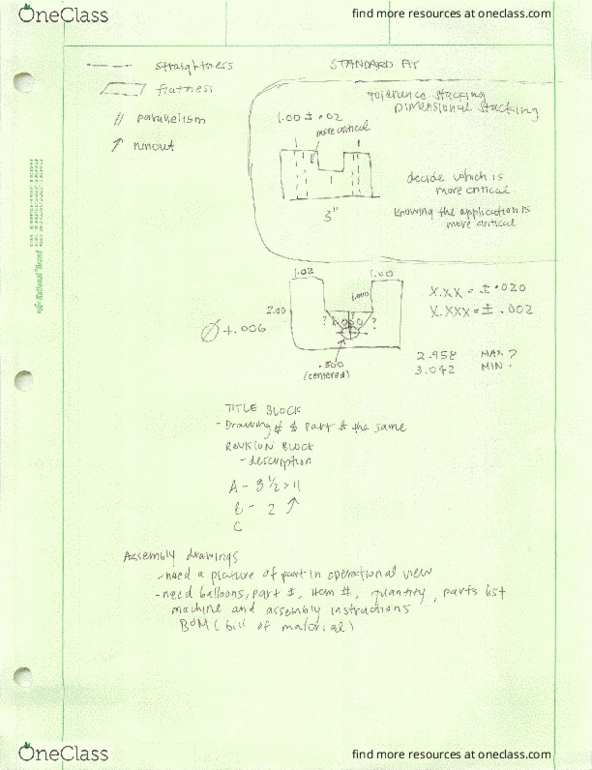 OneClass
find more resources at oneclass.com
straightness
flatness
// parallelism
↗ runout
STANDARD FIT
tolerance stacking
DIMENSIONAL STACKING
1.00 ± .02
more critical
3"
decide which is
more critical
knowing the application is
more critical
1.02
1.00
2.00
1.000
? ?
.500
(centered)
∅ +.006
X.XX = ± .020
X.XXX = ± .002
2.958 MAX ?
3.042 MIN .
TITLE BLOCK
- Drawing # & part # the same
REVISION BLOCK
- description
A - 8 1/2 × 11
B - 2 ↗
C
Assembly drawings
- need a picture of part in operational view
- need balloons, part #, item #, quantity, parts list
machine and assembly instructions
BOM (bill of material)
OneClass
find more resources at oneclass.com